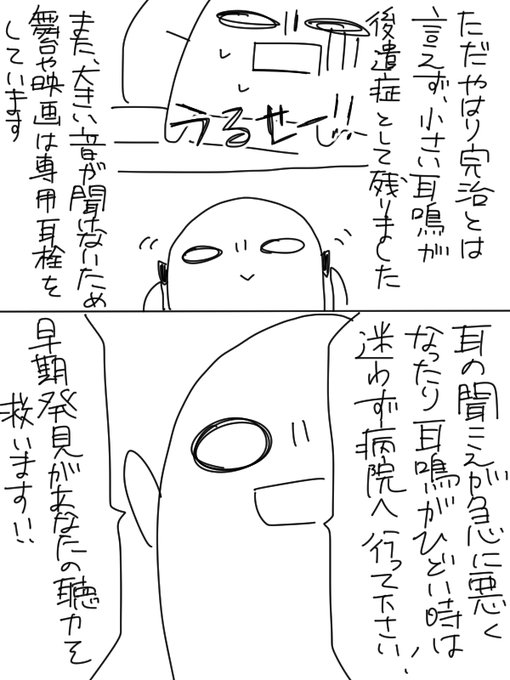 ただやはり完治とは
言えず、小さい耳鳴が
後遺症として残りました
うるせー!!
また、大きい音が聞けないため
舞台や映画は専用耳栓を
しています
耳の聞こえが急に悪く
なったり耳鳴がひどい時は
迷わず病院へ行って下さい!
早期発見があなたの聴力を
救います!!